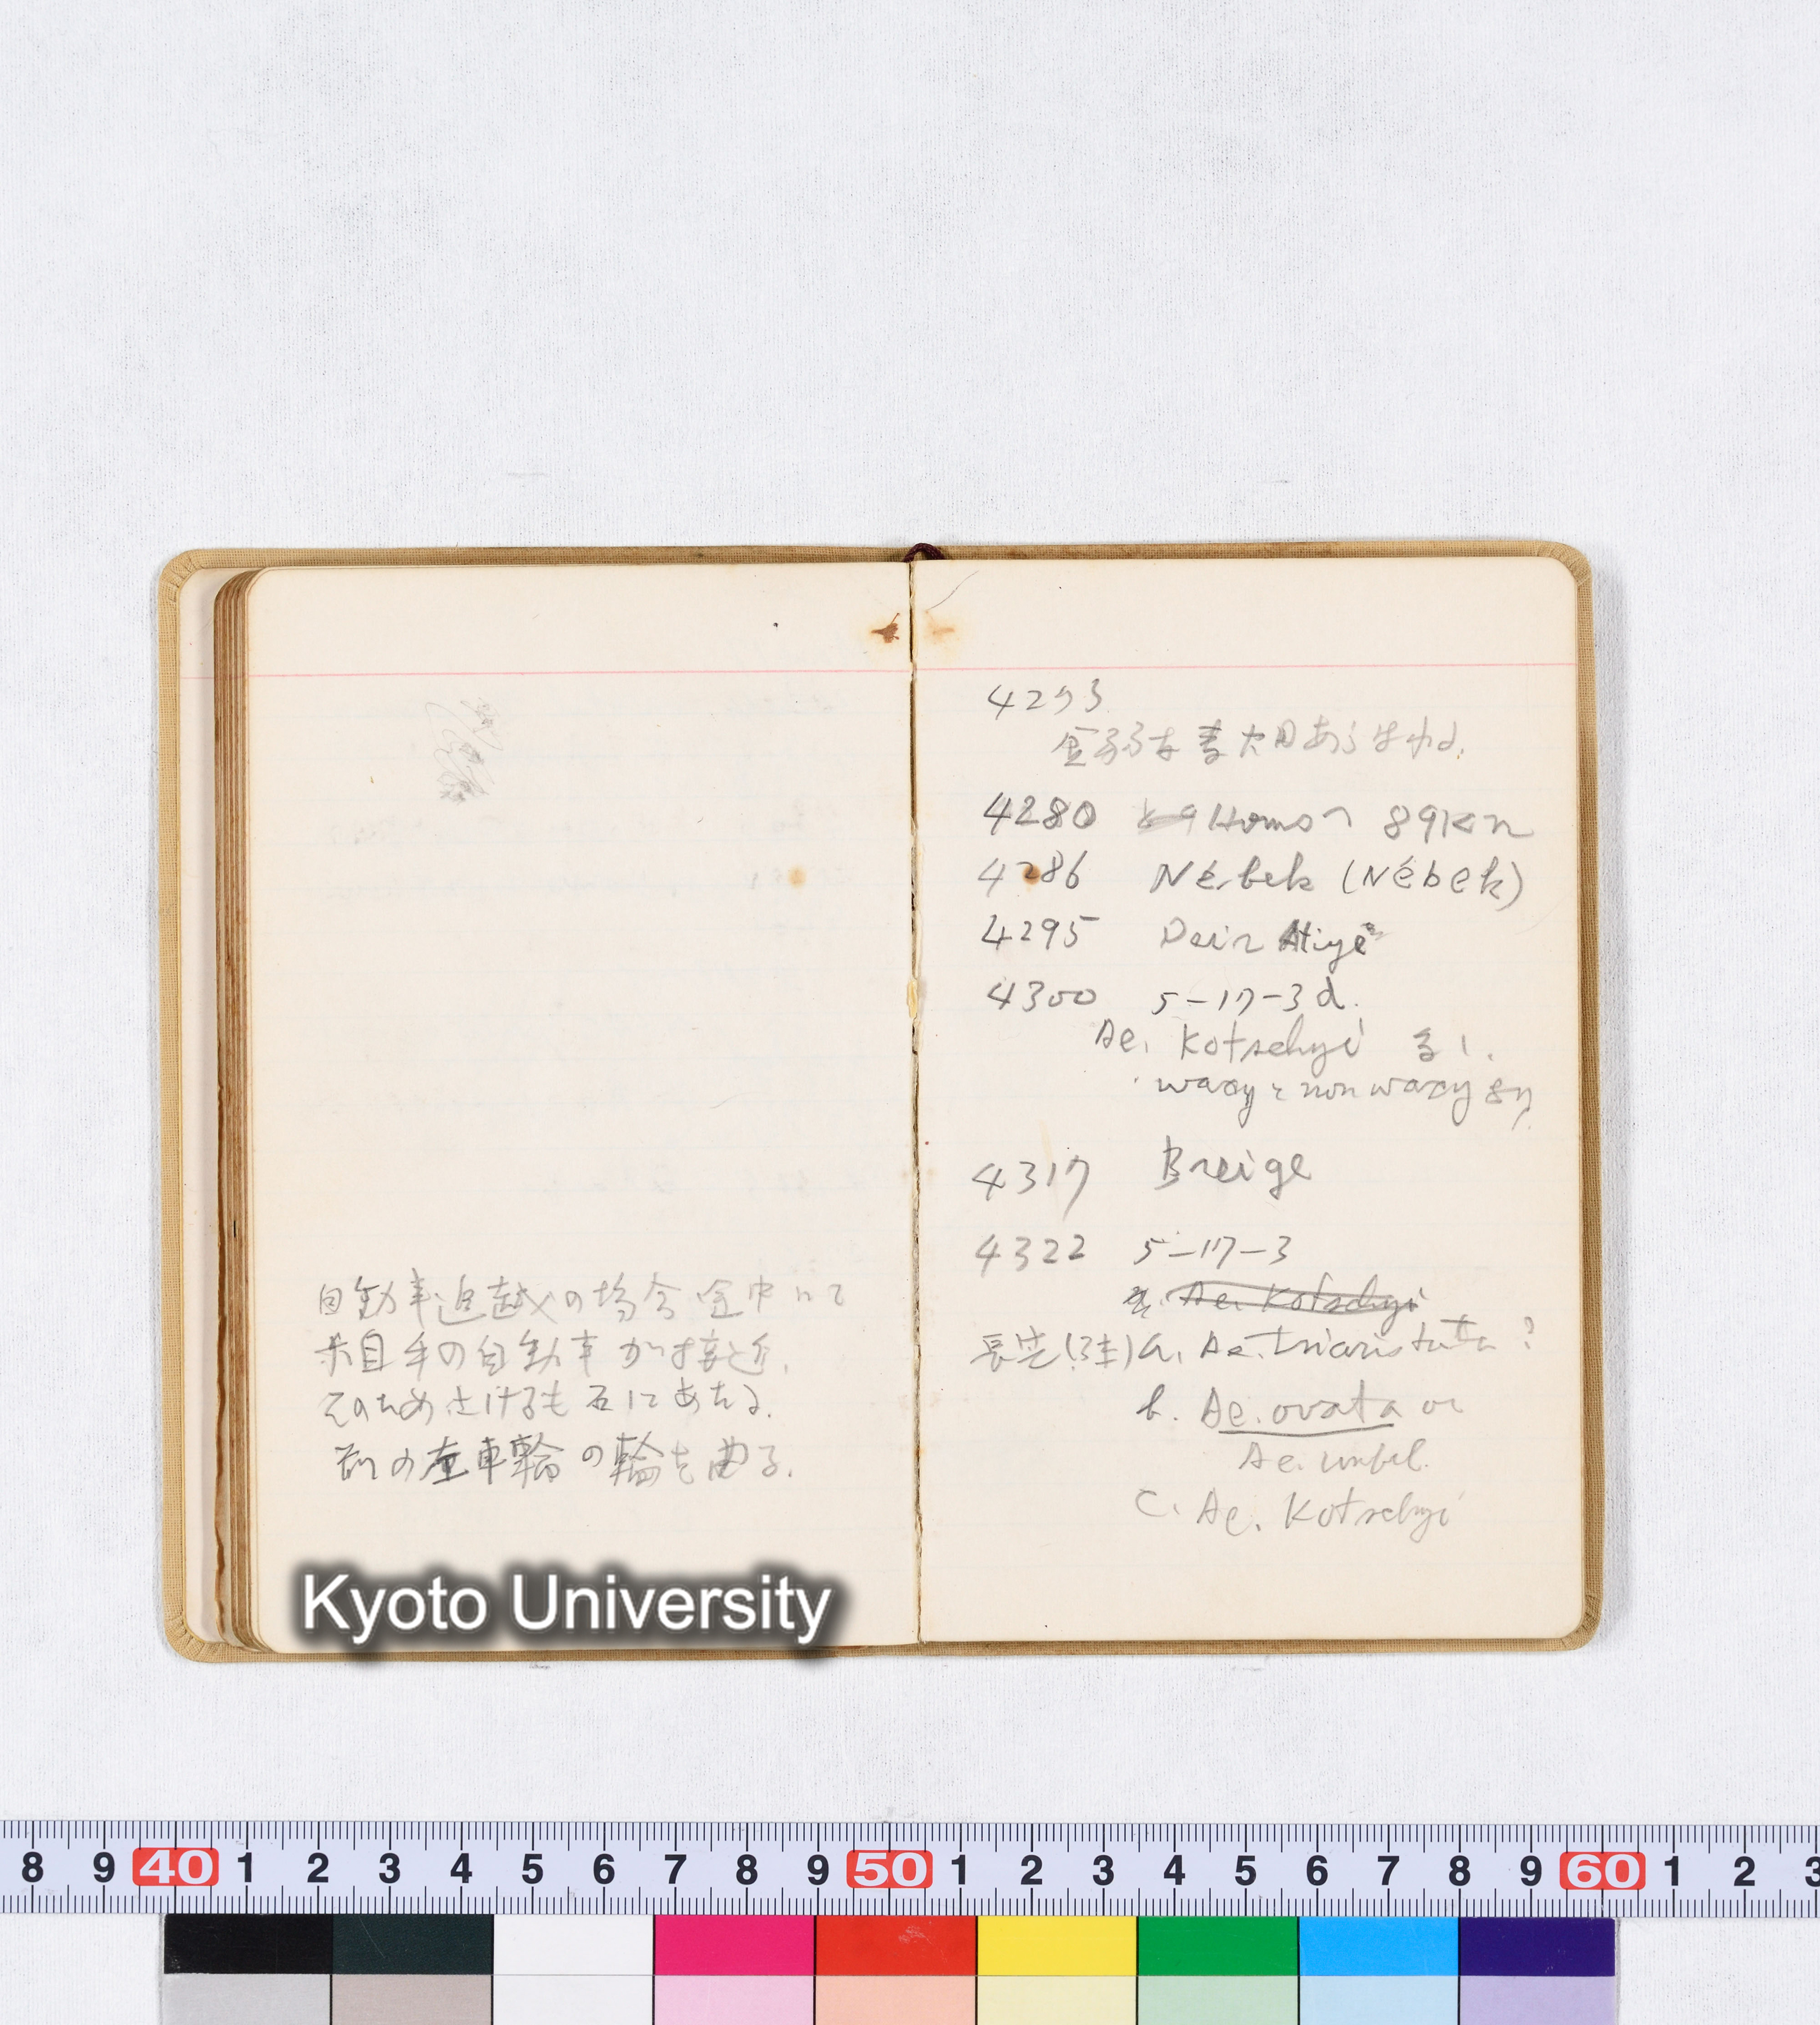 自動車追越の場合途中にて
自動車が接近.
そのためさけるも石にあたる.
前の左車輪の輪を曲る.
4273
4280 Homsへ 89Km
4286 Nébek (Nébek)
4295 Deir Atiyé
4300 5-17-3d.
Ae. Kotschyi 多し.
waxy と non waxy あり
4317 Breige
4322 5-17-3
Ae. Kotschyi
長芒(3本) a. Ae. triaristata ?
b. Ae. ovata or
Ae. umbel.
c. Ae. Kotschyi
Kyoto University
8 9 40 1 2 3 4 5 6 7 8 9 50 1 2 3 4 5 6 7 8 9 60 1 2 3